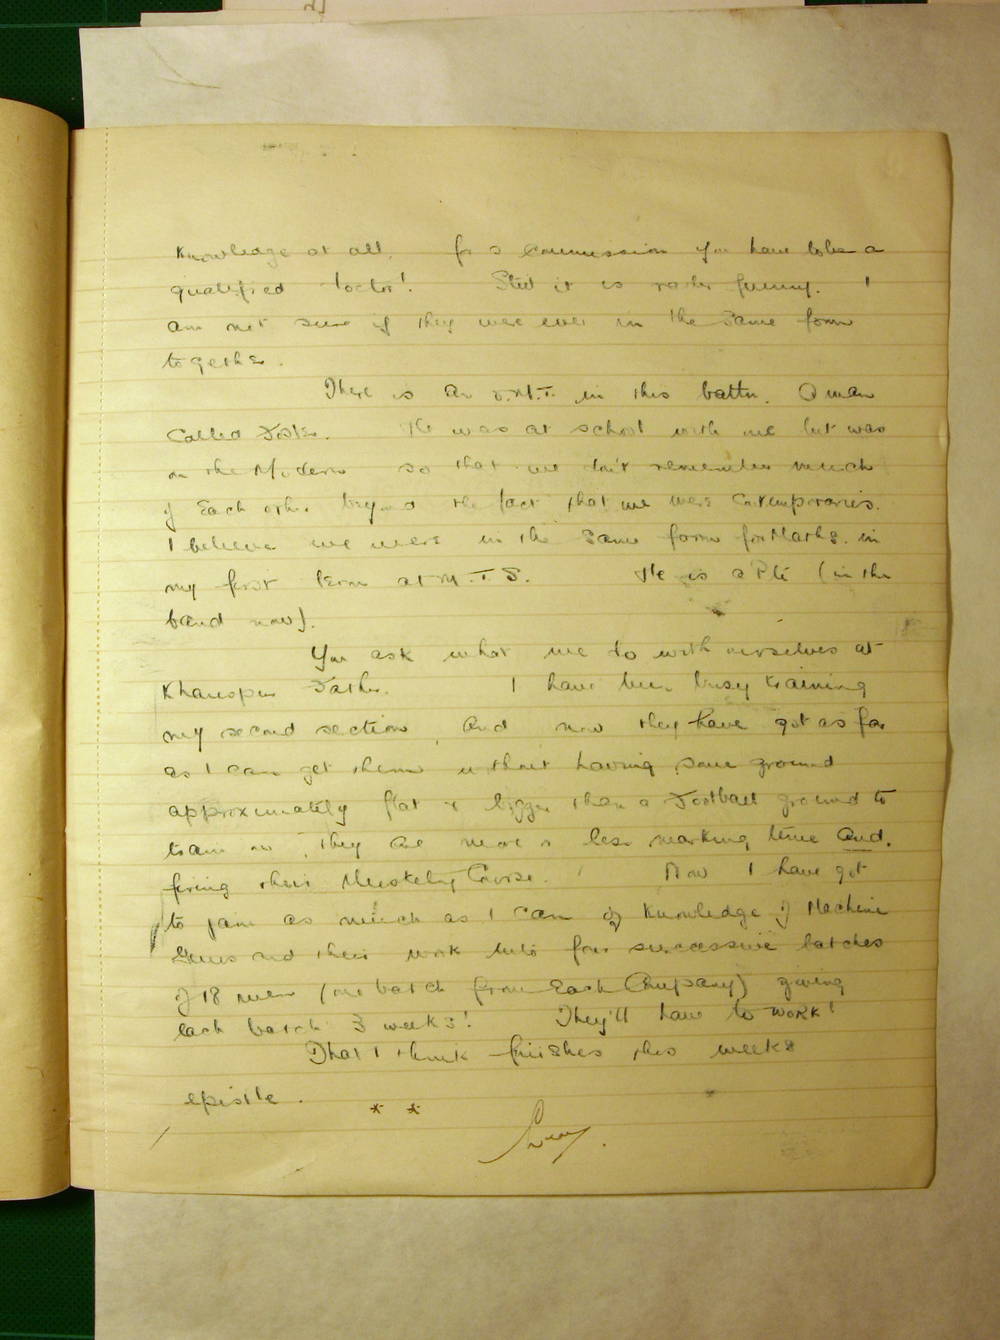 Knowledge at all. for a Commission you have to be a
qualified doctor! Still it is rather funny. I
am not sure if they were ever in the same form
together.
There is an O.M.T. in this battn. A man
called Foster. He was at school with me but was
on the Modern so that we don't remember much
of each other beyond the fact that we were contemporaries.
I believe we were in the same form for Maths. in
my first term at M.T.S. He is a Pte (in the
band now).
You ask what we do with ourselves at
Khanspur Father. I have been busy training
my second section, and now they have got as far
as I can get them without having some ground
approximately flat & bigger than a Football ground to
train on, they are more or less marking time and.
firing their Musketry Course. Now I have got
to jam as much as I can of Knowledge of Machine
Guns and their work into four successive batches
of 18 men (one batch from Each Company) giving
each batch 3 weeks! They'll have to work!
That I think finishes this weeks
epistle.
* *